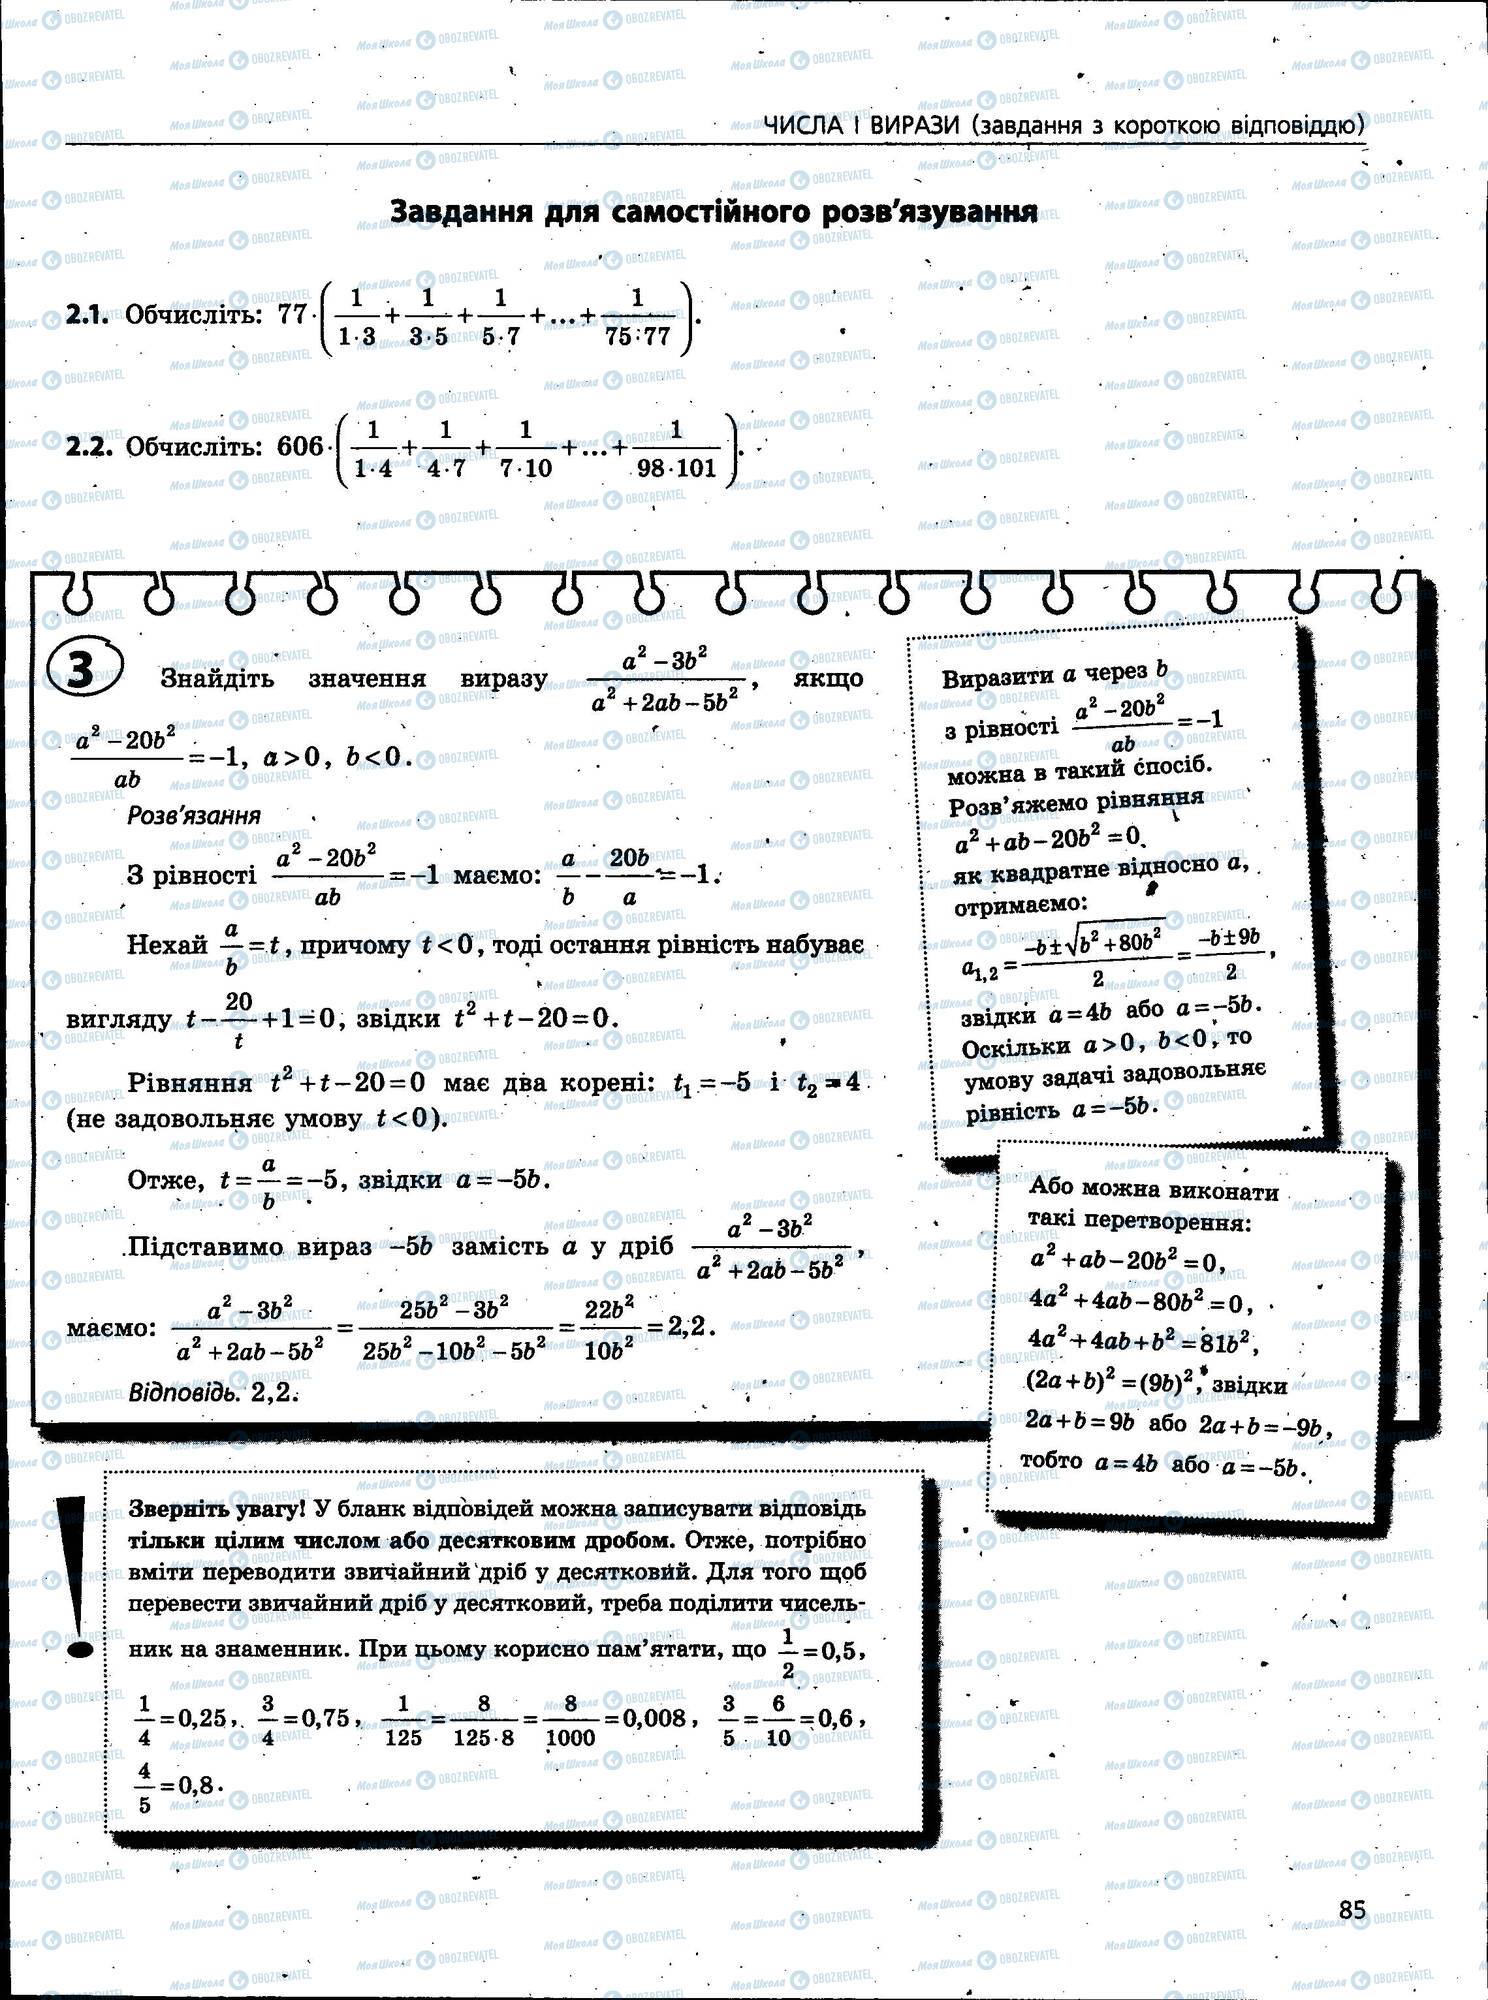 ЧИСЛА І ВИРАЗИ (завдання з короткою відповіддю)
Завдання для самостійного розв'язування
2.1. Обчисліть: 77·(1/(1·3) + 1/(3·5) + 1/(5·7) + ... + 1/(75·77)).
2.2. Обчисліть: 606·(1/(1·4) + 1/(4·7) + 1/(7·10) + ... + 1/(98·101)).
3 Знайдіть значення виразу (a² − 3b²)/(a² + 2ab − 5b²), якщо
(a² − 20b²)/ab = −1, a > 0, b < 0.
Розв'язання
З рівності (a² − 20b²)/ab = −1 маємо: a/b − 20b/a = −1.
Нехай a/b = t, причому t < 0, тоді остання рівність набуває
вигляду t − 20/t + 1 = 0, звідки t² + t − 20 = 0.
Рівняння t² + t − 20 = 0 має два корені: t₁ = −5 і t₂ = 4
(не задовольняє умову t < 0).
Отже, t = a/b = −5, звідки a = −5b.
Підставимо вираз −5b замість a у дріб (a² − 3b²)/(a² + 2ab − 5b²),
маємо: (a² − 3b²)/(a² + 2ab − 5b²) = (25b² − 3b²)/(25b² − 10b² − 5b²) = 22b²/10b² = 2,2.
Відповідь. 2,2.
Виразити a через b
з рівності (a² − 20b²)/ab = −1
можна в такий спосіб.
Розв'яжемо рівняння
a² + ab − 20b² = 0
як квадратне відносно a,
отримаємо:
a₁,₂ = (−b ± √(b² + 80b²))/2 = (−b ± 9b)/2,
звідки a = 4b або a = −5b.
Оскільки a > 0, b < 0, то
умову задачі задовольняє
рівність a = −5b.
Або можна виконати
такі перетворення:
a² + ab − 20b² = 0,
4a² + 4ab − 80b² = 0,
4a² + 4ab + b² = 81b²,
(2a + b)² = (9b)², звідки
2a + b = 9b або 2a + b = −9b,
тобто a = 4b або a = −5b.
! Зверніть увагу! У бланк відповідей можна записувати відповідь
тільки цілим числом або десятковим дробом. Отже, потрібно
вміти переводити звичайний дріб у десятковий. Для того щоб
перевести звичайний дріб у десятковий, треба поділити чисель-
ник на знаменник. При цьому корисно пам'ятати, що 1/2 = 0,5,
1/4 = 0,25, 3/4 = 0,75, 1/125 = 8/(125·8) = 8/1000 = 0,008, 3/5 = 6/10 = 0,6,
4/5 = 0,8.
85
Моя Школа OBOZREVATEL